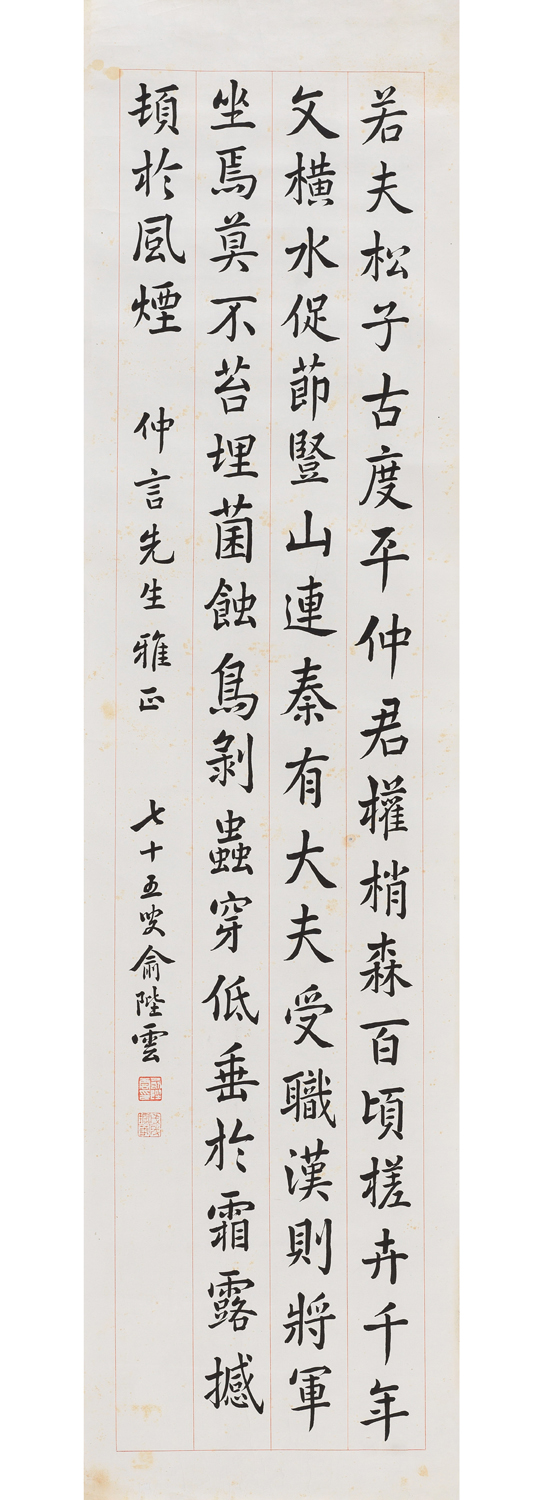 若夫松子古度平仲君權梢森百頃槎卉千年
文橫水促節豎山連秦有大夫受職漢則將軍
坐焉莫不苔埋菌蝕鳥剝蟲穿低垂於霜露撼
頓於風煙
仲言先生雅正
七十五叟俞陛雲